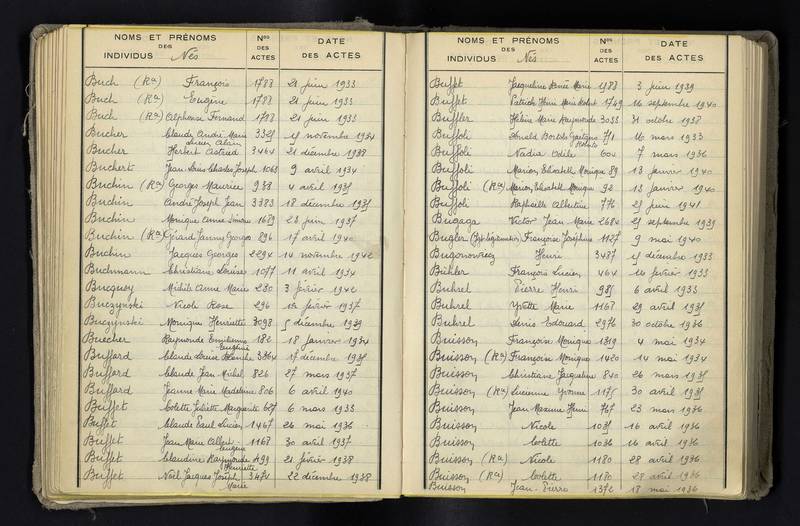 NOMS ET PRÉNOMS DES INDIVIDUS Nés Nos DES ACTES DATE DES ACTES
Buch (Ra) François 1788 21 juin 1933
Buch (Ra) Eugène 1788 21 juin 1933
Buch (Ra) Alphonse Fernand 1788 21 juin 1933
Bucher Claude André Marie novembre 1934
Lucien Alain
Bucher Herbert Astried 3464 21 décembre 1938
Bucherts Jean Louis Charles Joseph 1068 9 avril 1934
Buchin (Ra) Georges Maurice 938 4 avril 1935
Buchin André Joseph Jean 3383 18 décembre 1935
Buchin Monique Anne Simone 1689 23 juin 1937
Buchin (Ra) Girard Jammy Georges 896 17 avril 1940
Buchin Jacques Georges 2294 14 novembre 1942
Buchmann Christiane Louise 1077 11 avril 1934
Bucquoy Michèle Anne Marie 280 3 février 1942
Buczynski Nicole Rose 296 février 1937
Buczynski Monique Henriette 3098 5 décembre 1939
Buecher Raymonde Emilienne 182 18 janvier 1934
Eugénie
Buffard Claude Louise Blanche 3364 17 décembre 1935
Buffard Claude Jean Michel 826 27 mars 1937
Buffard Jeanne Marie Madeleine 806 6 avril 1940
Buffet Colette Juliette Marguerite 627 6 mars 1933
Buffet Claude Paul Lucien 1467 26 mai 1936
Buffet Jean Marie Albert 1168 30 avril 1937
Eugène
Buffet Claudine Raymonde 499 21 février 1938
Henriette
Buffet Noël Jacques Joseph 3474 22 décembre 1938
Marie
NOMS ET PRÉNOMS DES INDIVIDUS Nés Nos DES ACTES DATE DES ACTES
Buffet Jacqueline Renée Marie 1988 3 juin 1939
Buffet Patrick Henri Marie Robert 1749 16 septembre 1940
Buffler Hélène Marie Raymonde 3033 31 octobre 1938
Buffoli Gaetano 771 16 mars 1933
Buffoli Nadia Odile 604 7 mars 1936
Buffoli Marion Elisabeth Monique 89 13 janvier 1940
Buffoli (Ra) Marion Elisabeth Monique 92 13 janvier 1940
Buffoli Raphaelle Albertine 776 25 juin 1941
Bugaga Victor Jean Marie 2684 25 septembre 1939
Bugler (Jpt légitimation) Françoise Joséphine 1127 9 mai 1940
Bugonowiecz Henri 3487 décembre 1933
Bühler François Lucien 464 14 février 1933
Buhrel Pierre Henri 985 6 avril 1933
Buhrel Yvette Marie 1167 29 avril 1935
Buhrel Denis Edouard 2976 30 octobre 1936
Buisson Françoise Monique 1319 4 mai 1934
Buisson (Ra) Françoise Monique 1420 14 mai 1934
Buisson Christiane Jacqueline 840 26 mars 1935
Buisson (Ra) Lucienne Yvonne 1175 30 avril 1935
Buisson Jean Maxime Henri 767 23 mars 1936
Buisson Nicole 1035 16 avril 1936
Buisson Colette 1036 16 avril 1936
Buisson (Ra) Nicole 1180 28 avril 1936
Buisson (Ra) Colette 1180 28 avril 1936
Buisson Jean-Pierre 1372 18 mai 1936